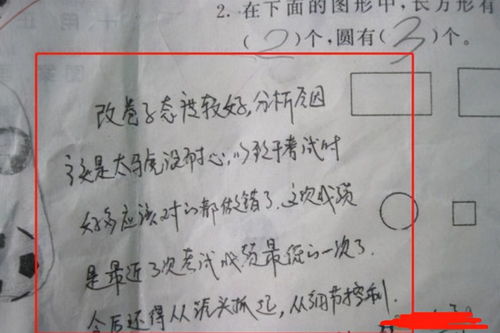 2. 在下面的图形中,长方形有
(2)个,圆有(3)个。
改卷子态度较好,分析原因
主要是太马虎没耐心,以至于考试时
好多应该对的都做错了。这次成绩
是最近3次考试成绩最低的一次了。
今后还得从源头抓起,从细节控制.